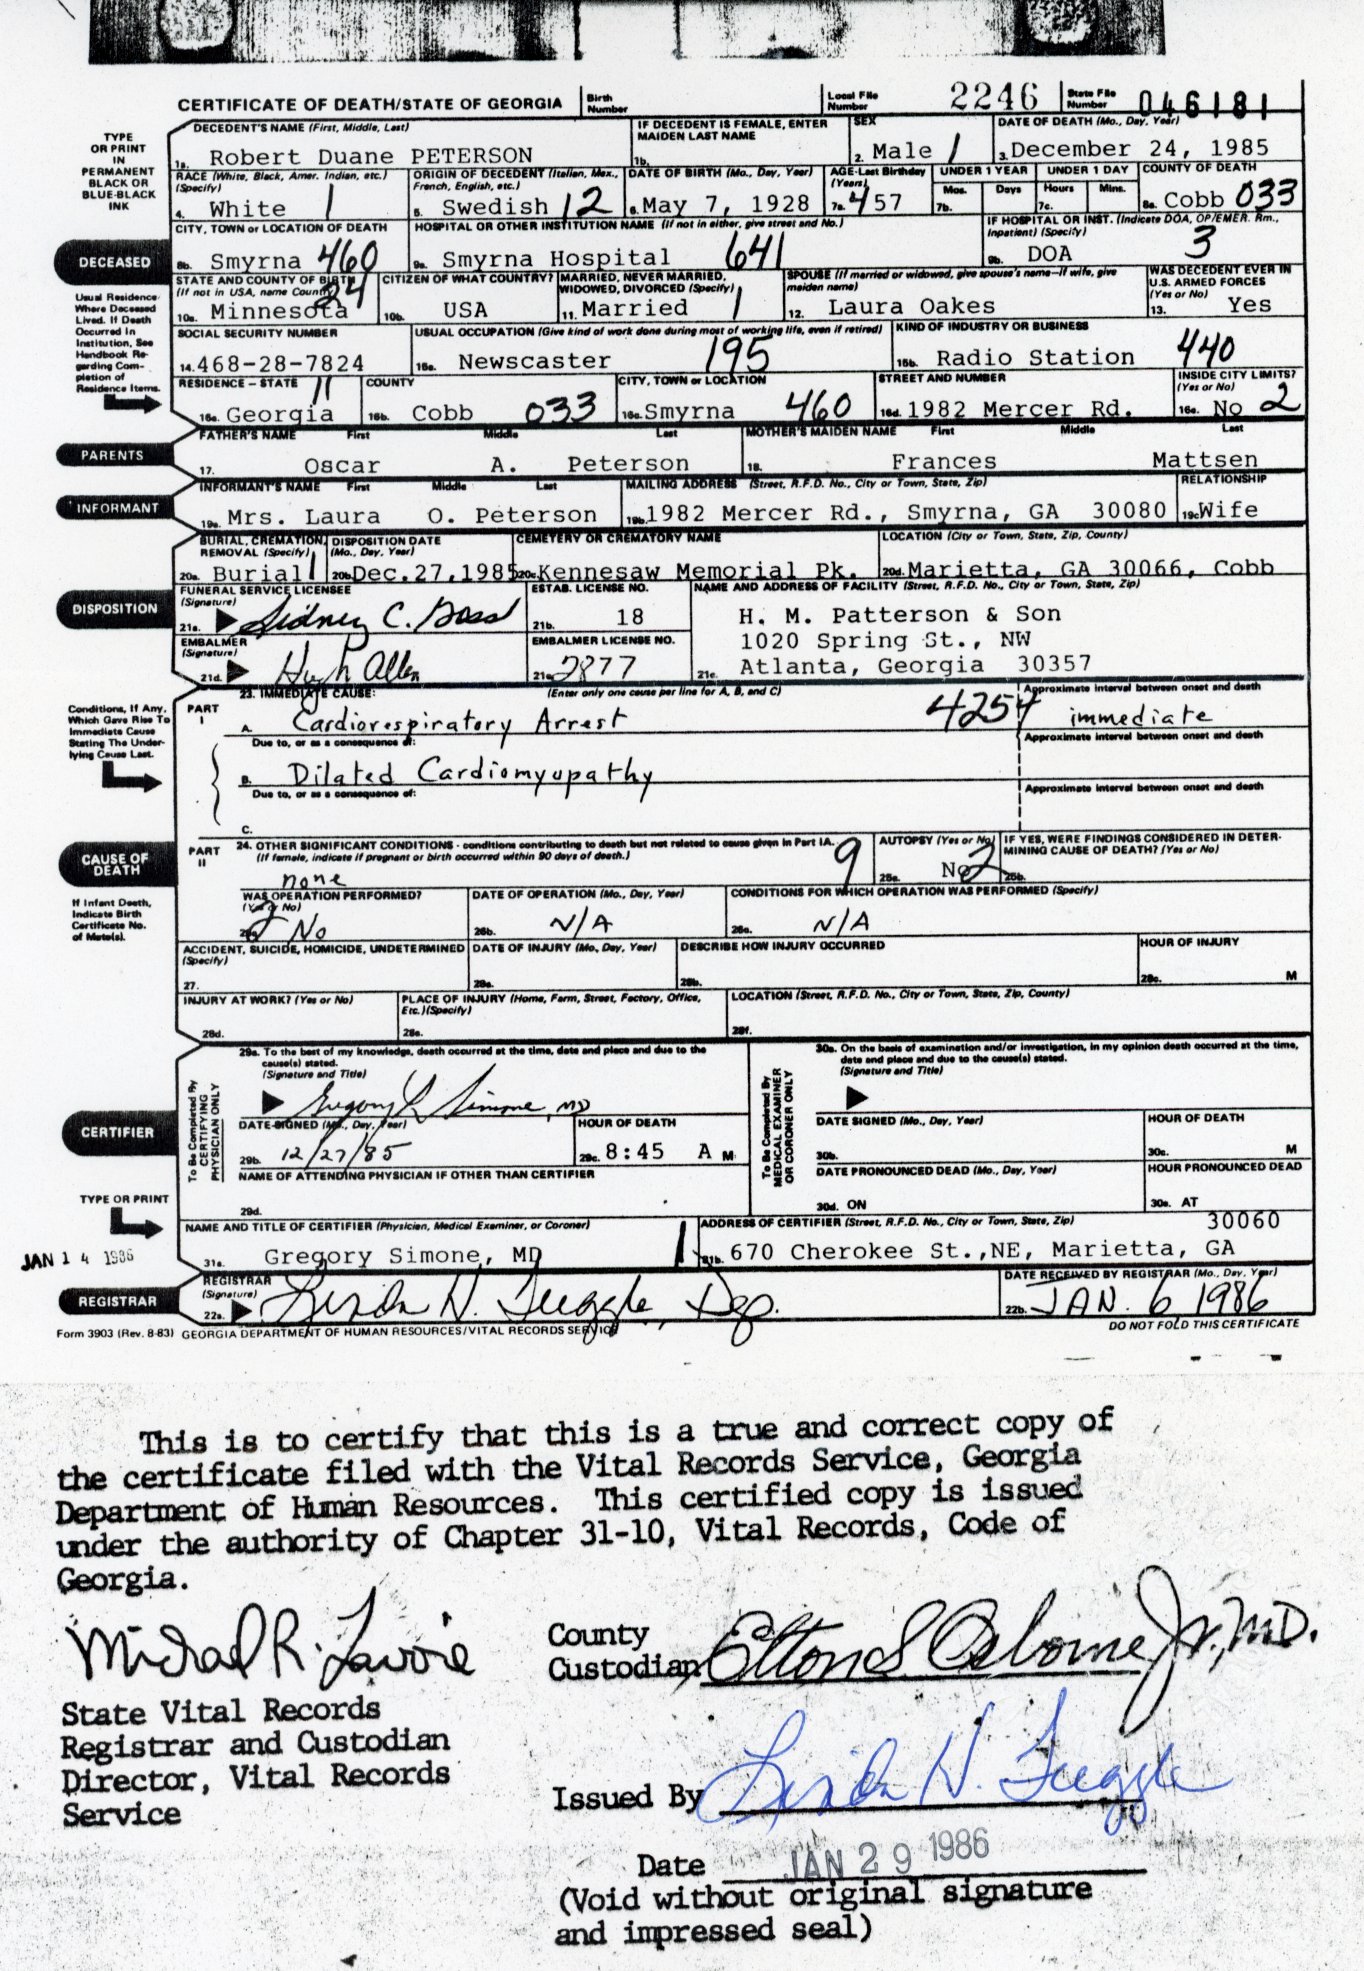 CERTIFICATE OF DEATH/STATE OF GEORGIA
Birth Number
Local File Number 2246
State File Number 046181
TYPE OR PRINT IN PERMANENT BLACK OR BLUE-BLACK INK
DECEDENT'S NAME (First, Middle, Last)
1a. Robert Duane PETERSON
IF DECEDENT IS FEMALE, ENTER MAIDEN LAST NAME
1b.
SEX
2. Male 1
DATE OF DEATH (Mo., Day, Year)
3. December 24, 1985
RACE (White, Black, Amer. Indian, etc.) (Specify)
4. White 1
ORIGIN OF DECEDENT (Italian, Mex., French, English, etc.)
5. Swedish 12
DATE OF BIRTH (Mo., Day, Year)
6. May 7, 1928
AGE-Last Birthday (Years)
7a. 4 57
UNDER 1 YEAR
Mos. Days
7b.
UNDER 1 DAY
Hours Mins.
7c.
COUNTY OF DEATH
8a. Cobb 033
DECEASED
CITY, TOWN or LOCATION OF DEATH
8b. Smyrna 460
HOSPITAL OR OTHER INSTITUTION NAME (If not in either, give street and No.)
9a. Smyrna Hospital 641
IF HOSPITAL OR INST. (Indicate DOA, OP/EMER. Rm., Inpatient) (Specify)
9b. DOA 3
STATE AND COUNTY OF BIRTH (If not in USA, name Country)
10a. Minnesota 24
CITIZEN OF WHAT COUNTRY?
10b. USA
MARRIED, NEVER MARRIED, WIDOWED, DIVORCED (Specify)
11. Married 1
SPOUSE (If married or widowed, give spouse's name—If wife, give maiden name)
12. Laura Oakes
WAS DECEDENT EVER IN U.S. ARMED FORCES (Yes or No)
13. Yes
Usual Residence Where Deceased Lived. If Death Occurred In Institution, See Handbook Regarding Completion of Residence Items.
SOCIAL SECURITY NUMBER
14. 468-28-7824
USUAL OCCUPATION (Give kind of work done during most of working life, even if retired)
15a. Newscaster 195
KIND OF INDUSTRY OR BUSINESS
15b. Radio Station 440
RESIDENCE - STATE
16a. Georgia 11
COUNTY
16b. Cobb 033
CITY, TOWN or LOCATION
16c. Smyrna 460
STREET AND NUMBER
16d. 1982 Mercer Rd.
INSIDE CITY LIMITS? (Yes or No)
16e. No 2
PARENTS
FATHER'S NAME First Middle Last
17. Oscar A. Peterson
MOTHER'S MAIDEN NAME First Middle Last
18. Frances Mattsen
INFORMANT
INFORMANT'S NAME First Middle Last
19a. Mrs. Laura O. Peterson
MAILING ADDRESS (Street, R.F.D. No., City or Town, State, Zip)
19b. 1982 Mercer Rd., Smyrna, GA 30080
RELATIONSHIP
19c. Wife
DISPOSITION
BURIAL, CREMATION, REMOVAL (Specify)
20a. Burial 1
DISPOSITION DATE (Mo., Day, Year)
20b. Dec.27,1985
CEMETERY OR CREMATORY NAME
20c. Kennesaw Memorial Pk.
LOCATION (City or Town, State, Zip, County)
20d. Marietta, GA 30066, Cobb
FUNERAL SERVICE LICENSEE (Signature)
21a. Sidney C.
ESTAB. LICENSE NO.
21b. 18
NAME AND ADDRESS OF FACILITY (Street, R.F.D. No., City or Town, State, Zip)
H. M. Patterson & Son
1020 Spring St., NW
21c. Atlanta, Georgia 30357
EMBALMER (Signature)
21d. Hugh Allen
EMBALMER LICENSE NO.
2877
Conditions, If Any, Which Gave Rise To Immediate Cause Stating The Underlying Cause Last.
PART I
23. IMMEDIATE CAUSE: (Enter only one cause per line for A, B, and C)
A. Cardiorespiratory Arrest 4254
Approximate interval between onset and death
immediate
Due to, or as a consequence of:
Approximate interval between onset and death
B. Dilated Cardiomyopathy
Due to, or as a consequence of:
Approximate interval between onset and death
C.
CAUSE OF DEATH
PART II
24. OTHER SIGNIFICANT CONDITIONS - conditions contributing to death but not related to cause given in Part IA. (If female, indicate if pregnant or birth occurred within 90 days of death.)
none 9
AUTOPSY (Yes or No)
25a. No 2
IF YES, WERE FINDINGS CONSIDERED IN DETERMINING CAUSE OF DEATH? (Yes or No)
25b.
If Infant Death, Indicate Birth Certificate No. of Mate(s).
WAS OPERATION PERFORMED? (Yes or No)
2 No
DATE OF OPERATION (Mo., Day, Year)
26b. N/A
CONDITIONS FOR WHICH OPERATION WAS PERFORMED (Specify)
26c. N/A
ACCIDENT, SUICIDE, HOMICIDE, UNDETERMINED (Specify)
27.
DATE OF INJURY (Mo., Day, Year)
28a.
DESCRIBE HOW INJURY OCCURRED
28b.
HOUR OF INJURY
28c. M
INJURY AT WORK? (Yes or No)
28d.
PLACE OF INJURY (Home, Farm, Street, Factory, Office, Etc.) (Specify)
28e.
LOCATION (Street, R.F.D. No., City or Town, State, Zip, County)
28f.
CERTIFIER
To Be Completed By CERTIFYING PHYSICIAN ONLY
29a. To the best of my knowledge, death occurred at the time, date and place and due to the cause(s) stated.
(Signature and Title)
Gregory L Simone, MD
DATE SIGNED (Mo., Day, Year)
29b. 12/27/85
HOUR OF DEATH
29c. 8:45 A M
NAME OF ATTENDING PHYSICIAN IF OTHER THAN CERTIFIER
29d.
To Be Completed By MEDICAL EXAMINER OR CORONER ONLY
30a. On the basis of examination and/or investigation, in my opinion death occurred at the time, date and place and due to the cause(s) stated.
(Signature and Title)
DATE SIGNED (Mo., Day, Year)
30b.
HOUR OF DEATH
30c. M
DATE PRONOUNCED DEAD (Mo., Day, Year)
30d. ON
HOUR PRONOUNCED DEAD
30e. AT
TYPE OR PRINT
NAME AND TITLE OF CERTIFIER (Physician, Medical Examiner, or Coroner)
31a. Gregory Simone, MD 1
ADDRESS OF CERTIFIER (Street, R.F.D. No., City or Town, State, Zip) 30060
31b. 670 Cherokee St.,NE, Marietta, GA
JAN 14 1986
REGISTRAR
REGISTRAR (Signature)
22a. Linda H. Tuggle, Dep.
DATE RECEIVED BY REGISTRAR (Mo., Day, Year)
22b. JAN. 6, 1986
Form 3903 (Rev. 8-83) GEORGIA DEPARTMENT OF HUMAN RESOURCES/VITAL RECORDS SERVICE
DO NOT FOLD THIS CERTIFICATE
This is to certify that this is a true and correct copy of
the certificate filed with the Vital Records Service, Georgia
Department of Human Resources. This certified copy is issued
under the authority of Chapter 31-10, Vital Records, Code of
Georgia.
Michael R. Lavoie
State Vital Records
Registrar and Custodian
Director, Vital Records
Service
County
Custodian Elton S. Osborne Jr., M.D.
Issued By Linda H. Tuggle
Date JAN 29 1986
(Void without original signature
and impressed seal)